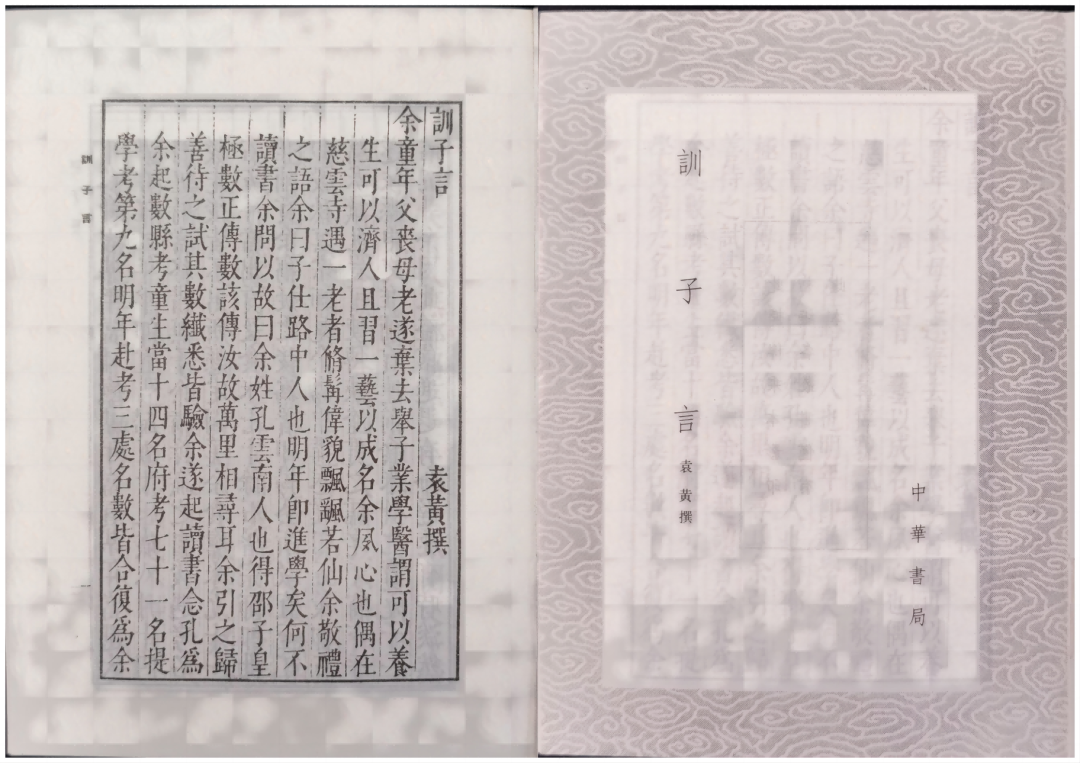 訓子言
袁黃撰
中華書局
訓子言 袁黃撰
余童年父喪母老遂棄去舉子業學醫謂可以養
生可以濟人且習一藝以成名余夙心也偶在
慈雲寺遇一老者脩髯偉貌飄飄若仙余敬禮
之語余曰子仕路中人也明年卽進學矣何不
讀書余問以故曰余姓孔雲南人也得邵子皇
極數正傳數該傳汝故萬里相尋耳余引之歸
善待之試其數纖悉皆驗余遂起讀書念孔爲
余起數縣考童生當十四名府考七十一名提
學考第九名明年赴考三處名數皆合復爲余
訓子言
一